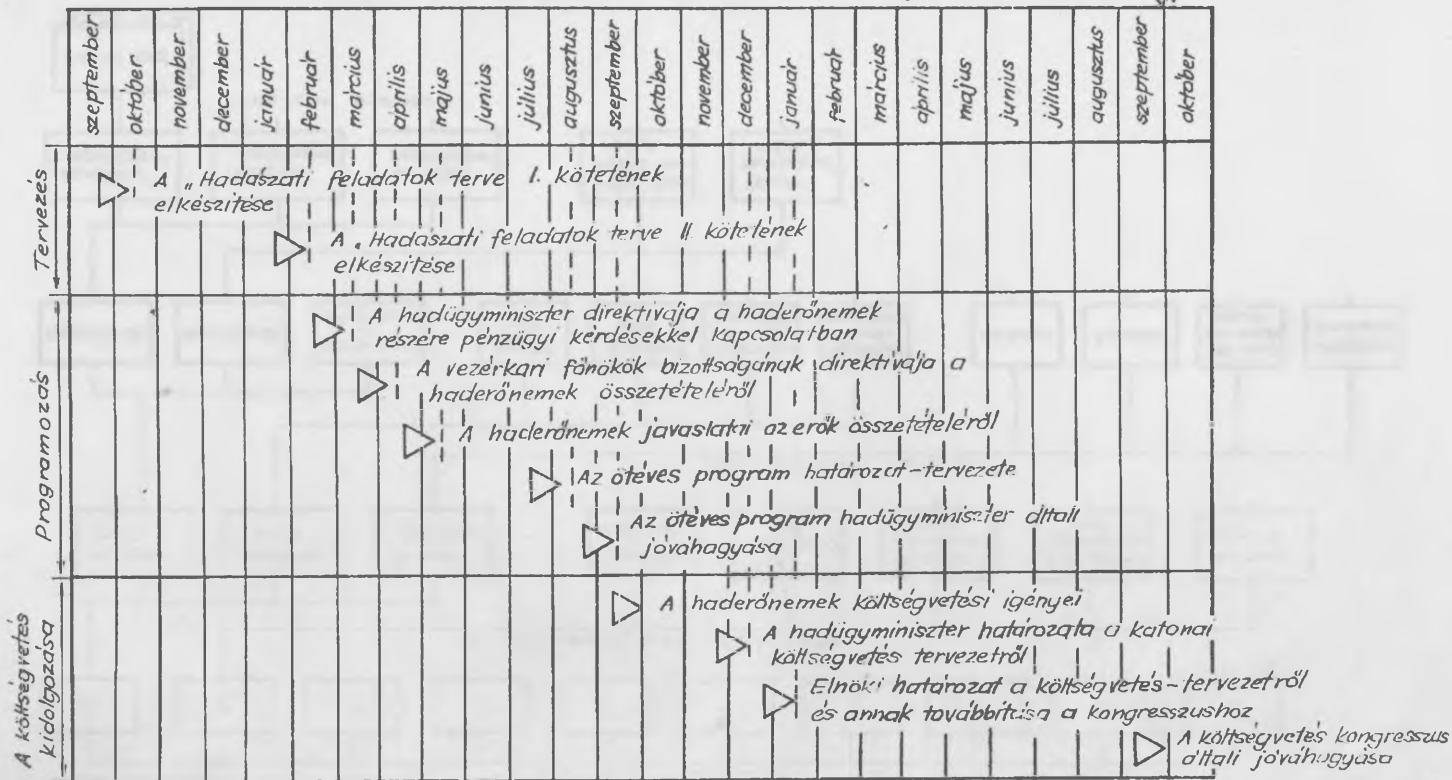 szeptember
október
november
december
január
február
március
április
május
junius
július
augusztus
szeptember
október
november
december
január
február
március
április
május
junius
július
augusztus
szeptember
október
Tervezés
A „Hadászati feladatok terve I. kötetének
elkészitése
A „Hadászati feladatok terve II kötetének
elkészitése
Programozás
A hadügyminiszter direktivája a haderőnemek
részére pénzügyi kérdésekkel kapcsolatban
A vezérkari főnökök bizottságának direktivája a
haderőnemek összetételéről
A haderőnemek javaslatai az erők összetételéről
Az ötéves program határozat-tervezete
Az ötéves program hadügyminiszter által
jóváhagyása
A költségvetés
kidolgozása
A haderőnemek költségvetési igényei
A hadügyminiszter határozata a katonai
költségvetés tervezetről
Elnöki határozat a költségvetés-tervezetről
és annak továbbitása a kongresszushoz
A költségvetés kongresszus
általi jóváhagyása